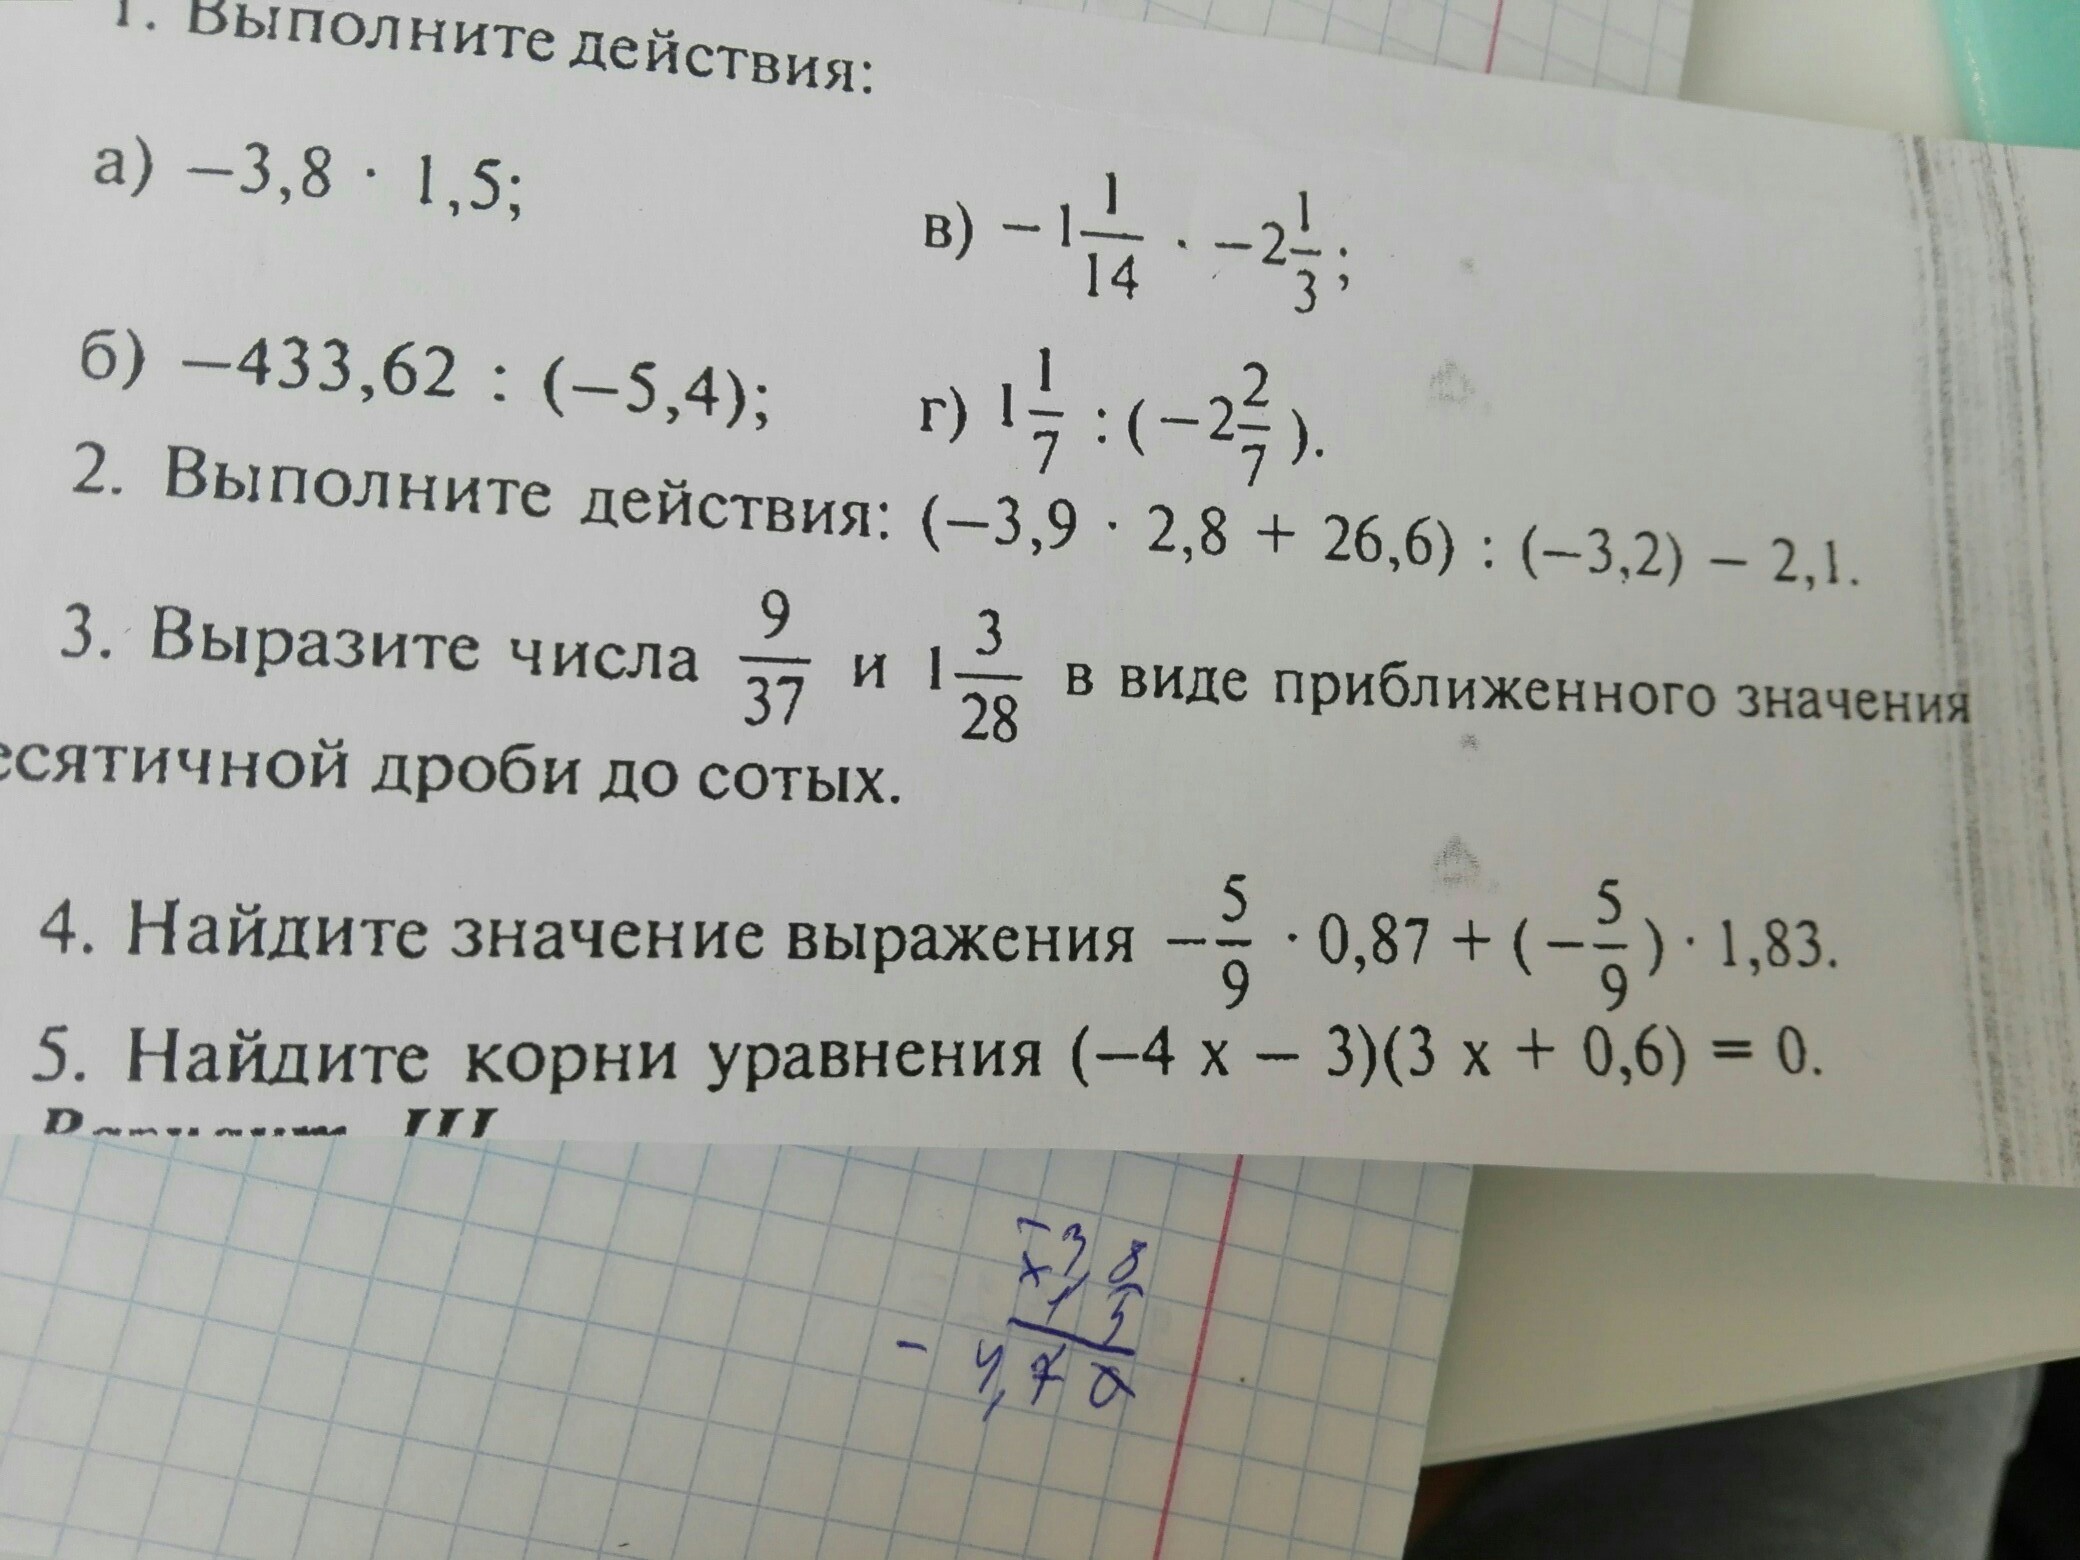 1. Выполните действия:
а) −3,8 · 1,5;
в) −1 1/14 · −2 1/3;
б) −433,62 : (−5,4);
г) 1 1/7 : (−2 2/7).
2. Выполните действия: (−3,9 · 2,8 + 26,6) : (−3,2) − 2,1.
3. Выразите числа 9/37 и 1 3/28 в виде приближенного значения
есятичной дроби до сотых.
4. Найдите значение выражения −5/9 · 0,87 + (−5/9) · 1,83.
5. Найдите корни уравнения (−4 x − 3)(3 x + 0,6) = 0.
Вариант III
−3,8
× 1,5
− 4,70